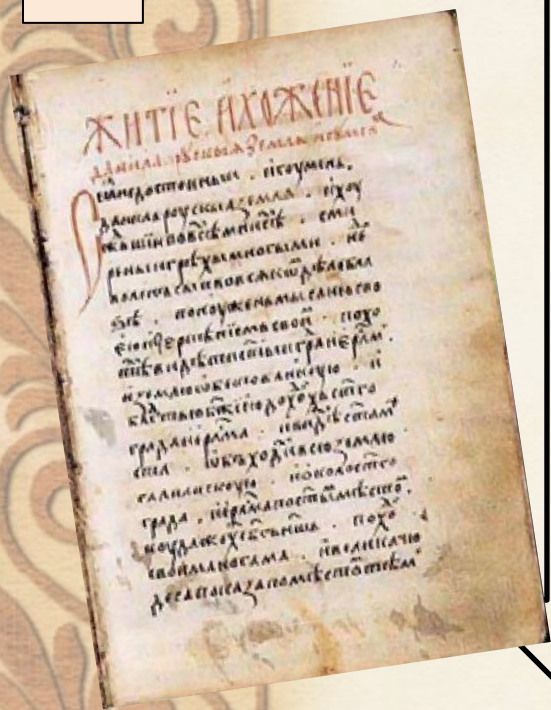 ЖИТІЕ. ИХОЖЕНІЕ
данила. рускыя земли игумена
недостоиныи . игоумень.
данила роускыа земля . ихоу
жьшіи во всѣ мнисѣ . сми
рены и грѣхы многыми . не
во всяком дѣлѣ бла
зѣ . понуженъ мыслью сво
ею и нетерпѣніемъ свои . похо
тѣ видѣти стыи гра иерлм .
и землю обѣтованную . и
блгтью бжіею дохо стго
града иерлма . и видѣ стаа
ста . обьходи всю землю
галилискоую . и около стго
града . иерлма по сты мѣсто .
коуда же хс бъ нашь . похо
своима ногама . и велика чю
деса показа по мѣстѣ тѣ